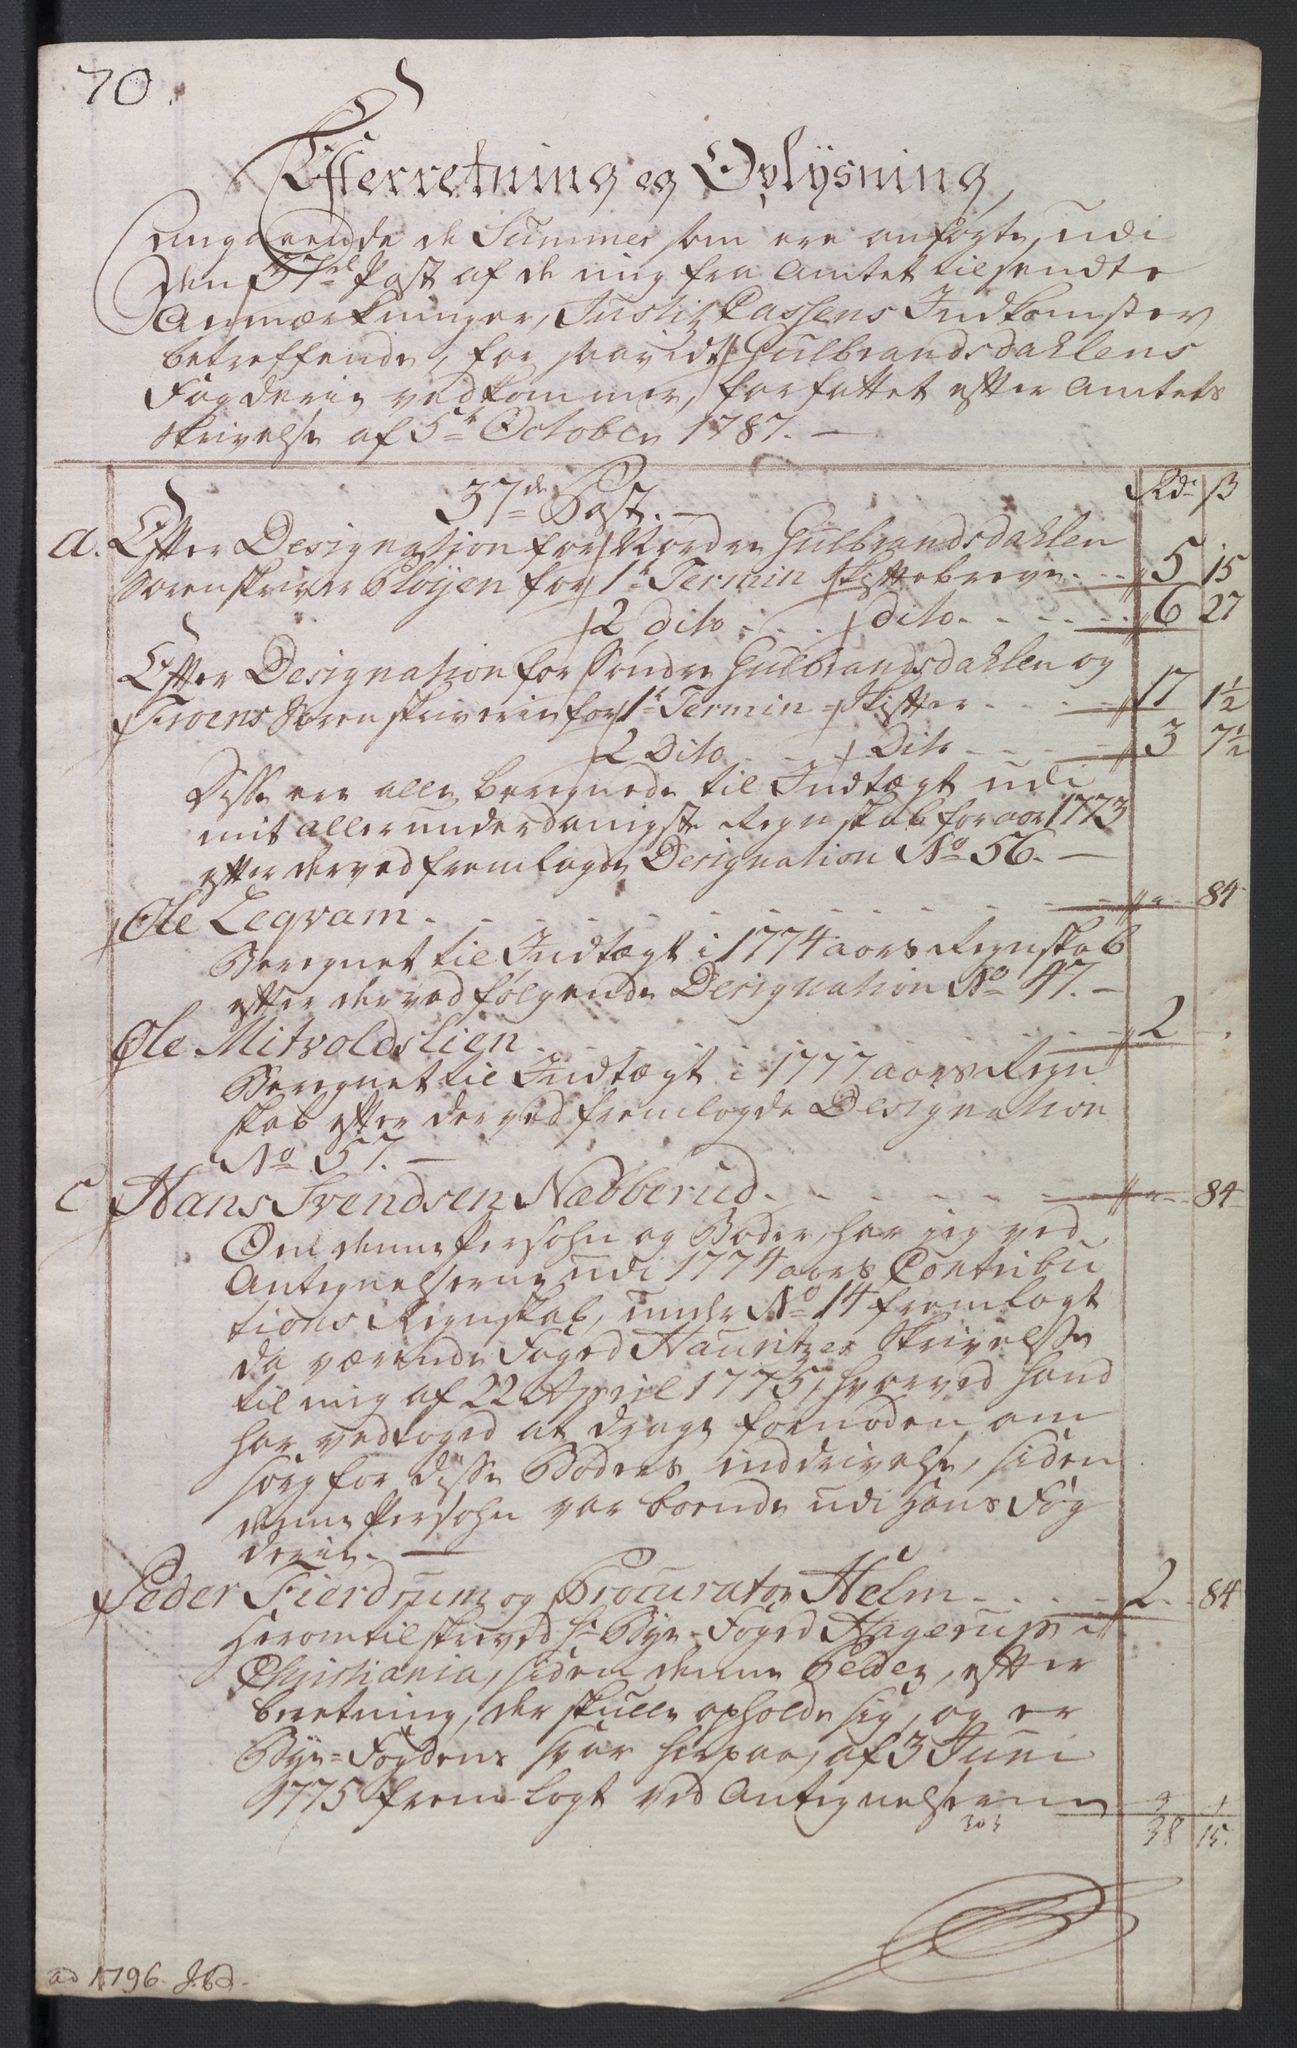 70.
Efterretning og Oplysning,
angaaende de Summer som ere anførte, udi
den 37de Post af de mig fra Amtet tilsendte
Anmærkninger, Justitz Cassens Indkomster
betreffende, for saavidt Gulbrandsdahlens
Fogderie vedkommer, forfattet efter Amtets
Skrivelse af 5te October 1787. —
37de Post. —
Rdr ß
a. Efter Designation for Nordre Gulbrandsdahlen
Sorenskriver Pløyen for 1te Termin Skiftebreve .... 5 15
2 dito .... dito ...... 6 27
Efter Designation for Søndre Gulbrandsdahlen og
Froens Sorenskriverie for 1te Termin Skifter .... 17 1½
2 Dito .... Dito .... 3 7½
Disse ere alle beregnede til Indtægt udi
mit allerunderdanigste Regnskab for aar 1773
efter derved fremlagde Designation No 56. —
Ole Legvam ........ " 84
Beregnet til Indtægt i 1774 aars Regnskab
efter derved følgende Designation No 47. —
Ole Mitvoldslien ........ 2 -
Beregnet til Indtægt i 1777 aars Regn
skab efter derved fremlagde Designation
No 57. —
C Hans Svendsen Næbberud ....... " 84
Om denne Persohn og Bøder, har jeg ved
Antegnelserne udi 1774 aars Contribu
tions Regnskab, under No 14 fremlagt
da værende Foged Hauritzes Skrivelse
til mig af 22 April 1775, hvorved hand
har vedtaget at drage fornøden om
sorg for disse Bøders inddrivelse, siden
denne Persohn var boende udi hans Fog
derie. —
Peder Fierdrum og Procurator Helm .... 2 84
Herom tilskreved Hr Bye-Foged Hagerup i
Christiania, siden denne Peder, efter
beretning, der skulle opholde sig, og er
Bye-Fogdens svar herpaa, af 3 Juni
1775 fremlagt ved Antegnelserne
38 15.
ad 1796.